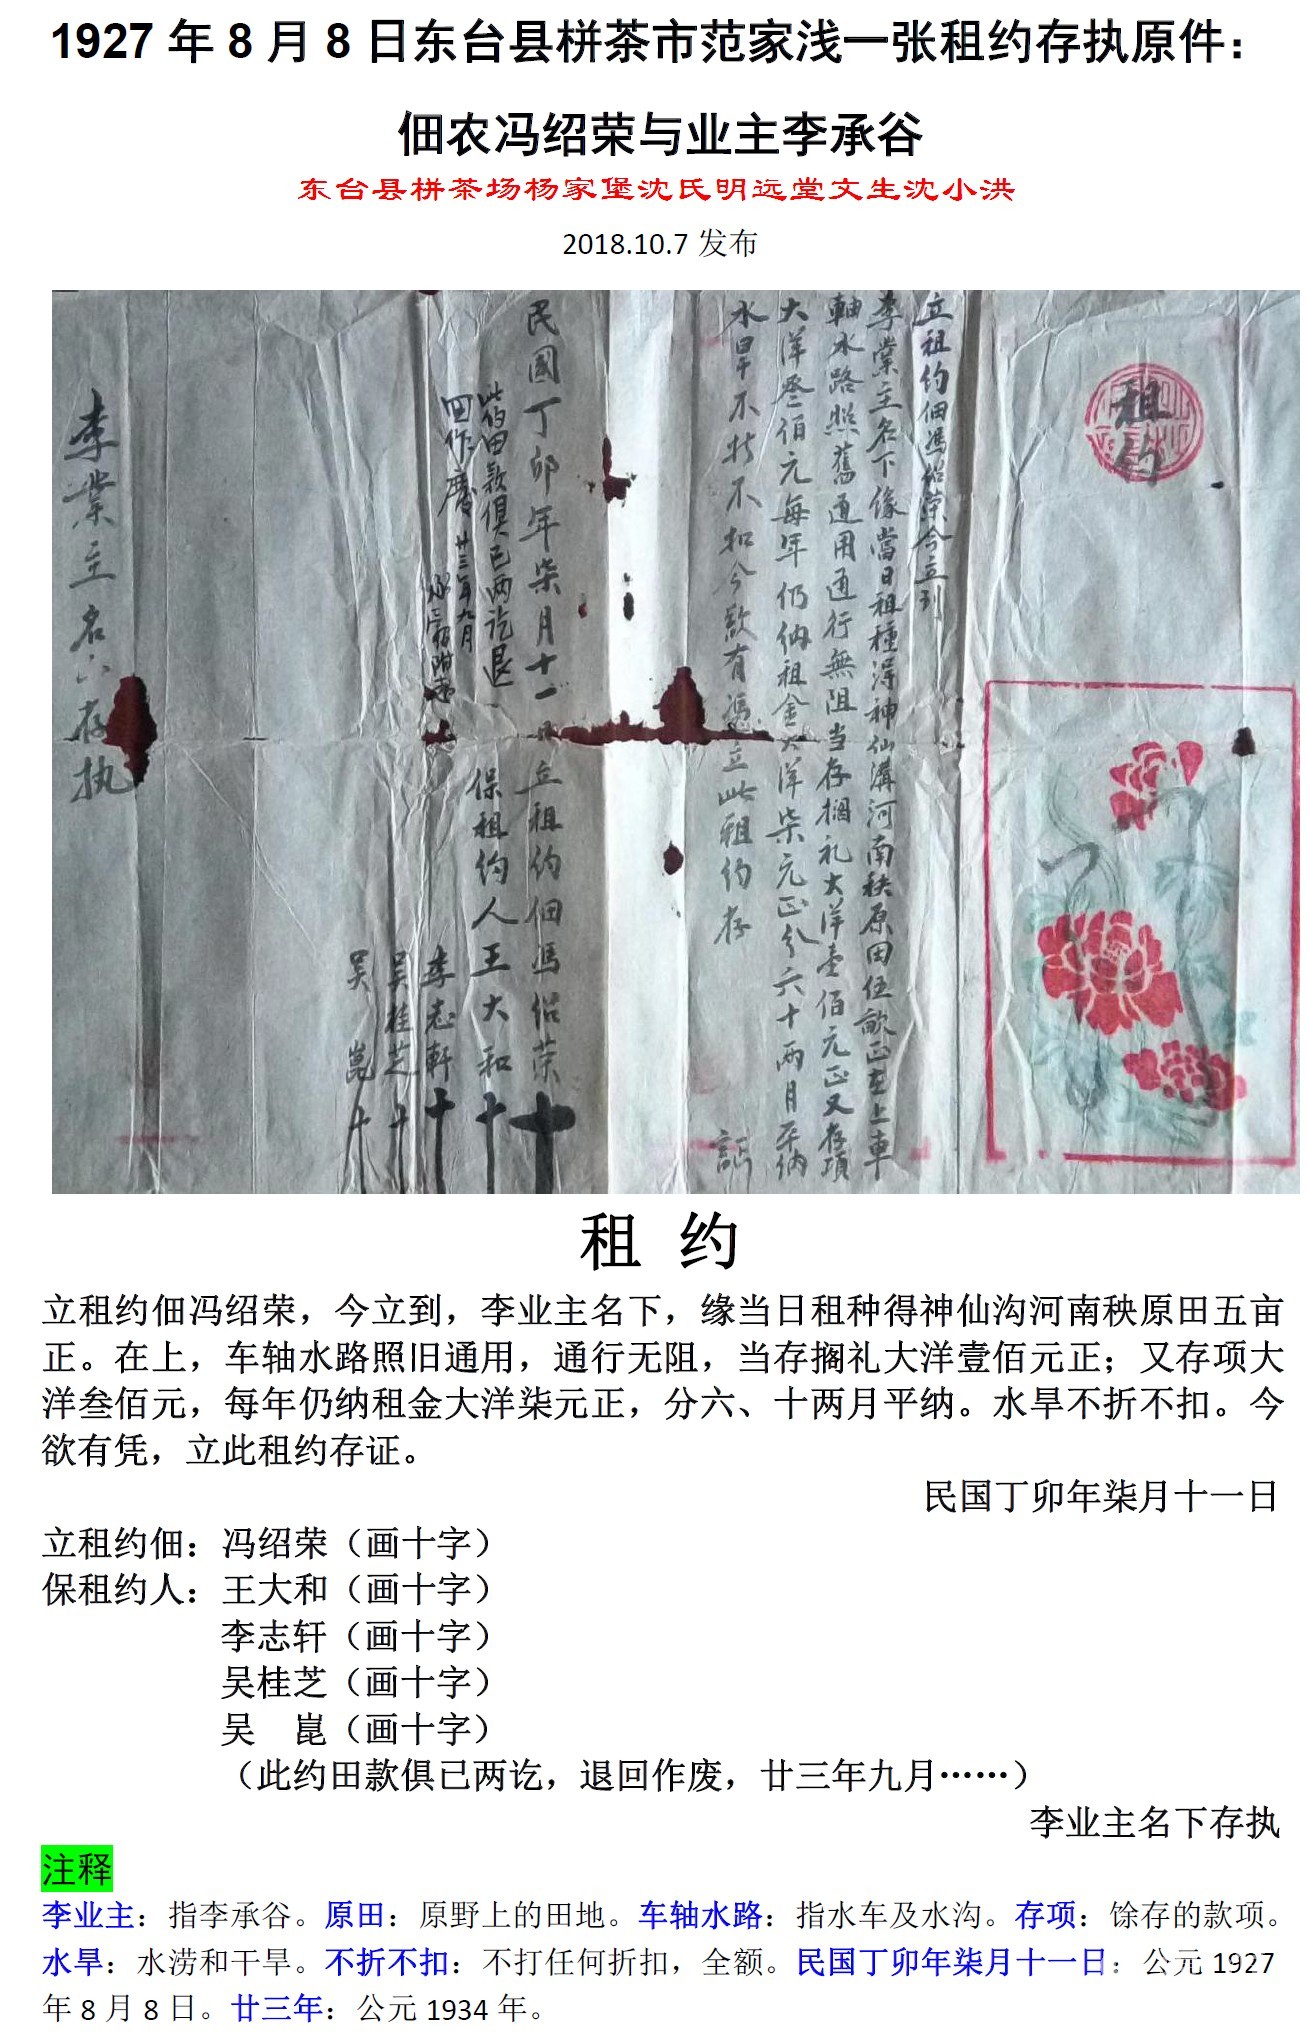 1927 年 8 月 8 日东台县栟茶市范家浅一张租约存执原件：
佃农冯绍荣与业主李承谷
东台县栟茶场杨家堡沈氏明远堂文生沈小洪
2018.10.7 发布
租约
立租约佃馮紹荣今立到
李業主名下缘當日租種得神仙溝河南秧原田伍畝正在上車
軸水路照舊通用通行無阻当存擱礼大洋壹佰元正又存項
大洋叁佰元每年仍纳租金大洋柒元正分六十两月平纳
水旱不折不扣今欲有憑立此租约存
証
民國丁卯年柒月十一日立租约佃馮紹荣十
此约田款俱已两讫退
回作廢廿三年九月
保租约人王大和十
李志軒十
吴桂芝十
吴崑十
李業主名下存执
租 约
立租约佃冯绍荣，今立到，李业主名下，缘当日租种得神仙沟河南秧原田五亩
正。在上，车轴水路照旧通用，通行无阻，当存搁礼大洋壹佰元正；又存项大
洋叁佰元，每年仍纳租金大洋柒元正，分六、十两月平纳。水旱不折不扣。今
欲有凭，立此租约存证。
民国丁卯年柒月十一日
立租约佃：冯绍荣（画十字）
保租约人：王大和（画十字）
李志轩（画十字）
吴桂芝（画十字）
吴　崑（画十字）
（此约田款俱已两讫，退回作废，廿三年九月……）
李业主名下存执
注释
李业主：指李承谷。原田：原野上的田地。车轴水路：指水车及水沟。存项：馀存的款项。
水旱：水涝和干旱。不折不扣：不打任何折扣，全额。民国丁卯年柒月十一日：公元 1927
年 8 月 8 日。廿三年：公元 1934 年。